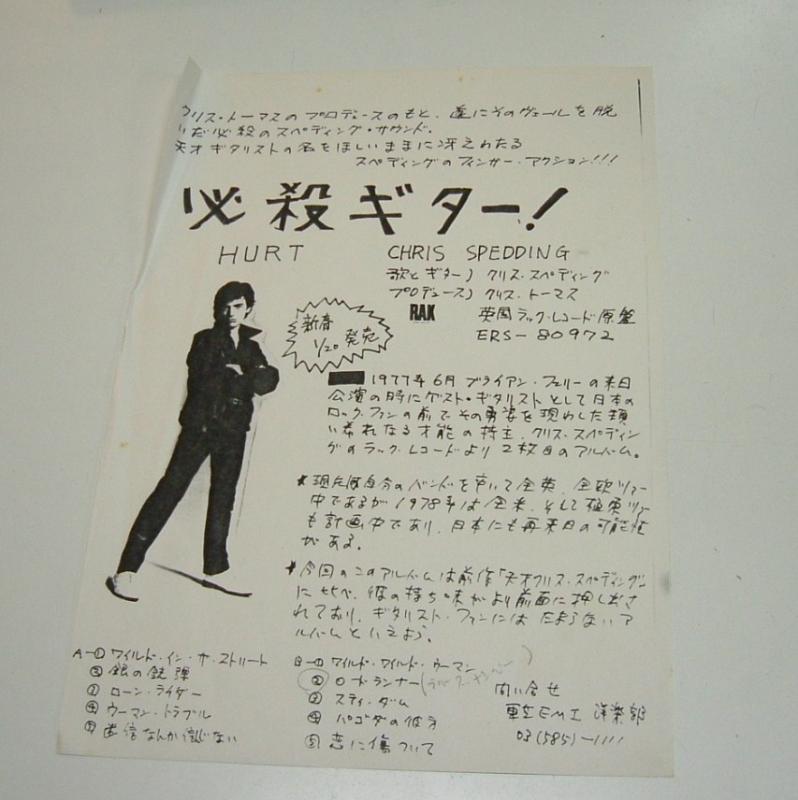 クリス・トーマスのプロデュースのもと、遂にそのヴェールを脱
いだ必殺のスペディング・サウンド。
天才ギタリストの名をほしいままに冴えわたる
スペディングのフィンガー・アクション!!!
必殺ギター!
HURT
CHRIS SPEDDING
歌とギター) クリス・スペディング
プロデュース) クリス・トーマス
RAK
英国ラック・レコード原盤
ERS-80972
新春
1/20発売
1977年6月 ブライアン・フェリーの来日
公演の時にゲスト・ギタリストとして日本の
ロック・ファンの前でその勇姿を現わした類
い希れなる才能の持主、クリス・スペディン
グのラック・レコードより2枚目のアルバム。
★現在は自分のバンドを率いて全英、全欧ツアー
中であるが1978年は全米、そして極東ツアー
も計画中であり、日本にも再来日の可能性
がある。
★今回のこのアルバムは前作「天才クリス・スペディング」
に比べ、彼の持ち味がより前面に押し出さ
れており、ギタリスト・ファンにはたまらないア
ルバムといえよう。
A-① ワイルド・イン・ザ・ストリート
② 銀の銃弾
③ ローン・ライダー
④ ウーマン・トラブル
⑤ 迷信なんか信じない
B-① ワイルド・ワイルド・ウーマン
② ロードランナー
③ ステイ・ダム
④ パゴダの彼方
⑤ 恋に傷ついて
問い合せ
東芝EMI 洋楽部
03(585)-1111